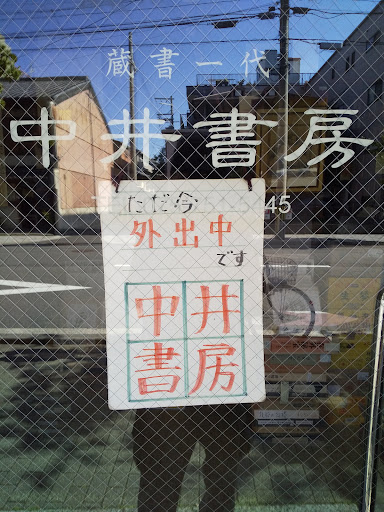 蔵書一代
中井書房
ただ今
外出中
です
中井
書房